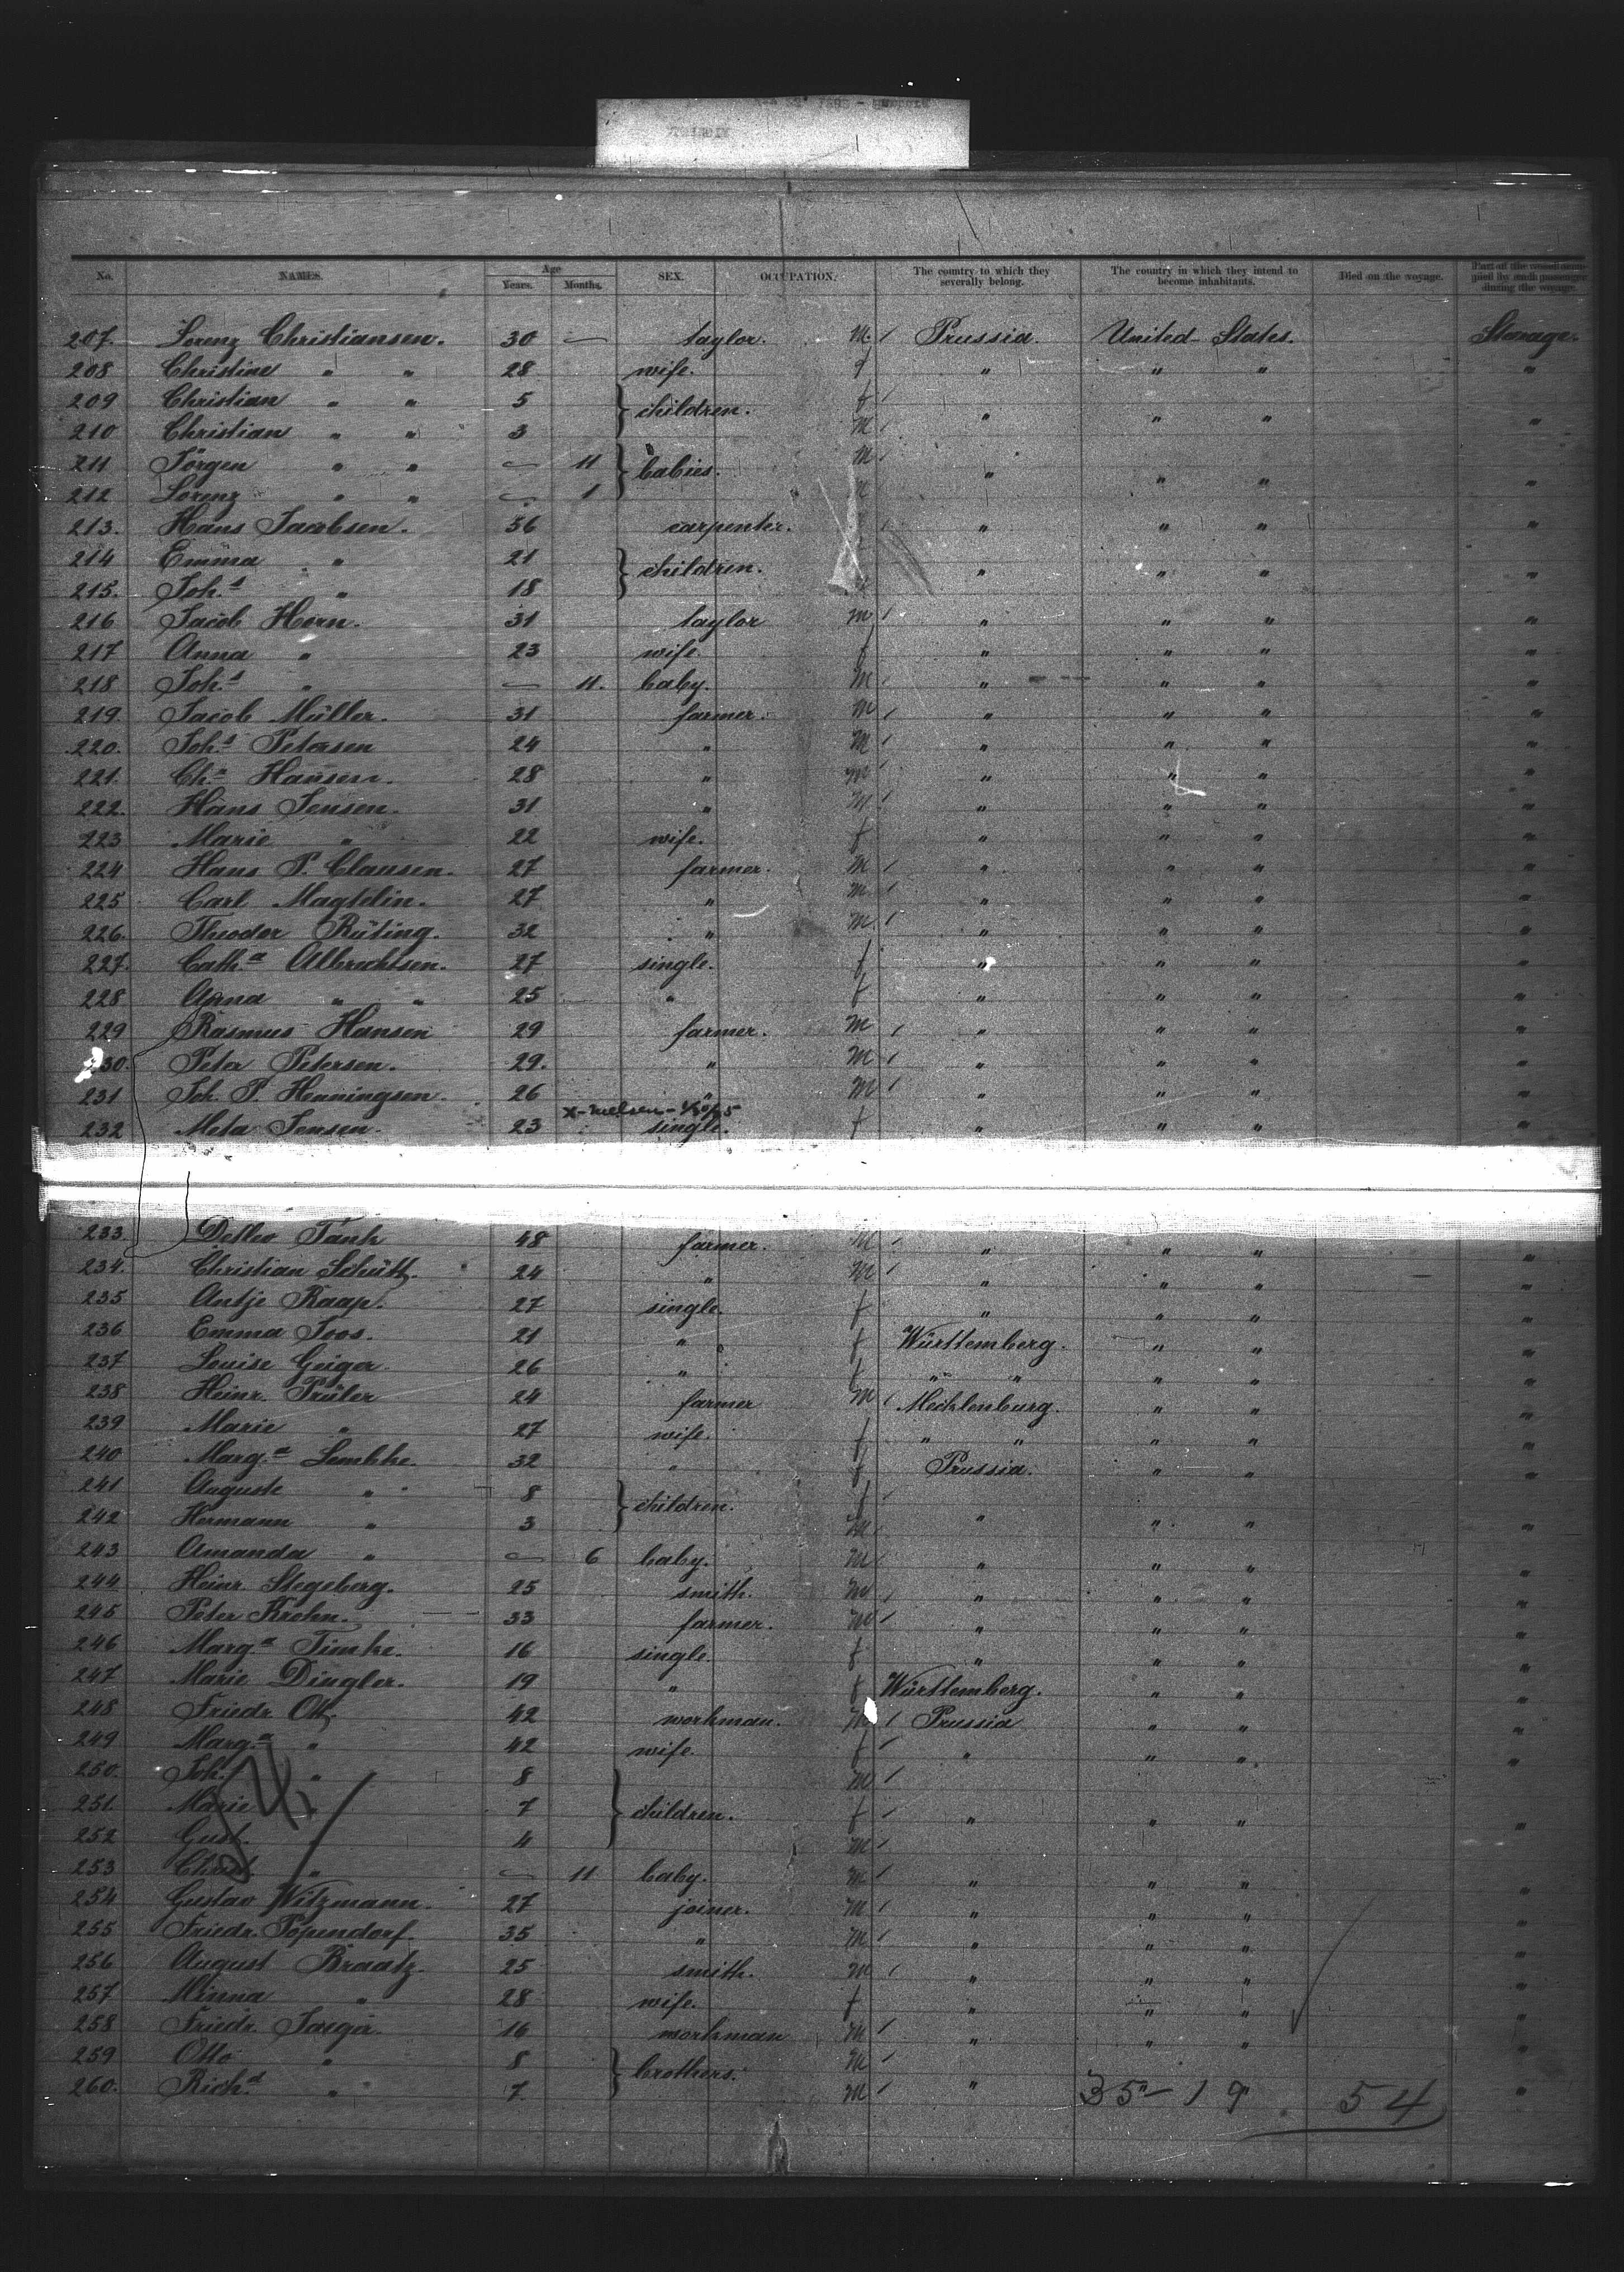 No. NAMES. Age Years. Months. SEX. OCCUPATION. The country to which they severally belong. The country in which they intend to become inhabitants. Died on the voyage. Part of the vessel occupied by each passenger during the voyage.
207. Lorenz Christiansen. 30 — taylor. M. / Prussia. United States. Steerage.
208 Christine " " 28 wife. f " " " "
209 Christian " " 5 } children. f / " " " "
210 Christian " " 3 M /
211 Jörgen " " — 11 } babies. M / " " " "
212 Lorenz " " — 1 M
213. Hans Jacobsen. 56 carpenter. / " " " "
214 Emma " 21 } children. " " " "
215. Joh.s " 18
216 Jacob Horn. 31 taylor M / " " " "
217 Anna " 23 wife. f " " " "
218 Joh.s " — 11. baby. M / " " " "
219. Jacob Müller. 31 farmer. M / " " " "
220. Joh.s Petersen 24 " M / " " " "
221. Ch.n Hansen. 28 " M / " " " "
222. Hans Jensen. 31 " M / " " " "
223 Marie " 22 wife. f " " " "
224 Hans P. Clausen. 27 farmer. M / " " " "
225 Carl Magtelin. 27 " M. / " " " "
226. Theodor Rüting. 32 " M. / " " " "
227. Cath.a Albrechtsen. 27 single. f " " " "
228 Anna " " 25 " f " " " "
229 Rasmus Hansen 29 farmer. M / " " " "
230. Peter Petersen. 29. " M / " " " "
231 Joh. P. Henningsen. 26 " M / " " " "
x-nielsen-
232 Meta Jensen. 23 single. f " " " "
233. Detlev Tank 48 farmer. M / " " " "
234. Christian Schütt. 24 " M / " " " "
235 Antje Raap. 27 single. f " " " "
236 Emma Joos. 21 " f Württemberg. " " "
237 Louise Geiger. 26 " f " " " " "
238 Heinr. Prüter 24 farmer M / Mecklenburg. " " "
239 Marie " 27 wife. f " " " " "
240 Marg.a Lembke. 32 " f Prussia. " " "
241 Auguste " 8 } children. f / " " " "
242 Hermann " 3 M /
243 Amanda " — 6 baby. M / " " " "
244 Heinr. Stegeberg. 25 smith. M / " " " "
245 Peter Krohn. 33 farmer. M / " " " "
246 Marg.a Timke. 16 single. f " " " "
247 Marie Dingler. 19 " f Württemberg. " " "
248 Friedr. Ott. 42 workman. M / Prussia " " "
249 Marg.a " 42 wife. f / " " " "
250. Joh.s " 8 } children. M /
251. Marie " 7 f / " " " "
252 Gust. " 4 M /
253 Christ. " — 11 baby. M / " " " "
254 Gustav Witzmann. 27 joiner. M / " " " "
255 Friedr. Popendorf. 35 " M / " " " "
256 August Braatz. 25 smith. M / " " " "
257 Minna " 28 wife. f " " " "
258 Friedr. 16 workman M / " " " "
259 Otto " 8 } brothers. M /
260. Rich.d " 7 M / " "
35 - 19 54